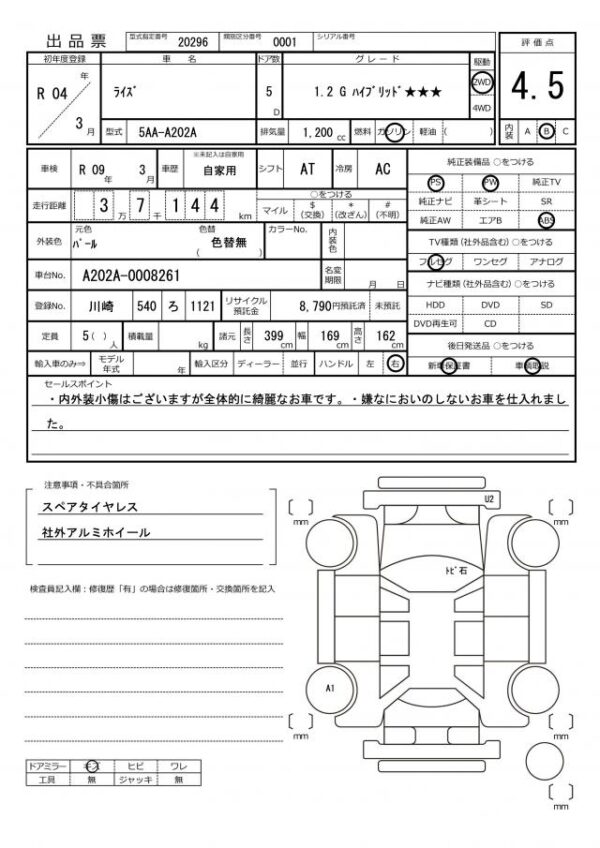 出品票 型式指定番号 20296 類別区分番号 0001 シリアル番号
評価点
4.5
内装 A B C
初年度登録 車名 ドア数 グレード 駆動
R 04 年 3 月 ﾗｲｽﾞ 5 D 1.2 G ﾊｲﾌﾞﾘｯﾄﾞ★★★ 2WD 4WD
型式 5AA-A202A 排気量 1,200 cc 燃料 ガソリン 軽油 ( )
車検 R 09 年 3 月 車歴 ※未記入は自家用 自家用 シフト AT 冷房 AC
走行距離 3 万 7 千 1 4 4 km マイル ○をつける $ (交換) * (改ざん) # (不明)
外装色 元色 ﾊﾟｰﾙ 色替 色替無 ( ) カラーNo. 内装色
車台No. A202A-0008261 名変期限 月 日
登録No. 川崎 540 ろ 1121 リサイクル預託金 8,790円預託済 未預託
定員 5 ( ) 人 積載量 kg 諸元 長さ 399 cm 幅 169 cm 高さ 162 cm
輸入車のみ⇒ モデル年式 年 輸入区分 ディーラー 並行 ハンドル 左 右
純正装備品 ○をつける
PS PW 純正TV
純正ナビ 革シート SR
純正AW エアB ABS
TV種類（社外品含む）○をつける
フルセグ ワンセグ アナログ
ナビ種類（社外品含む）○をつける
HDD DVD SD
DVD再生可 CD
後日発送品 ○をつける
新車保証書 車輌取説
セールスポイント
・内外装小傷はございますが全体的に綺麗なお車です。・嫌なにおいのしないお車を仕入れまし
た。
注意事項・不具合箇所
スペアタイヤレス
社外アルミホイール
検査員記入欄：修復歴「有」の場合は修復箇所・交換箇所を記入
U2
〔 〕 mm 〔 〕 mm
ﾄﾋﾞ石
A1
〔 〕 mm 〔 〕 mm
〔 〕 mm
ドアミラー キズ ヒビ ワレ
工具 無 ジャッキ 無